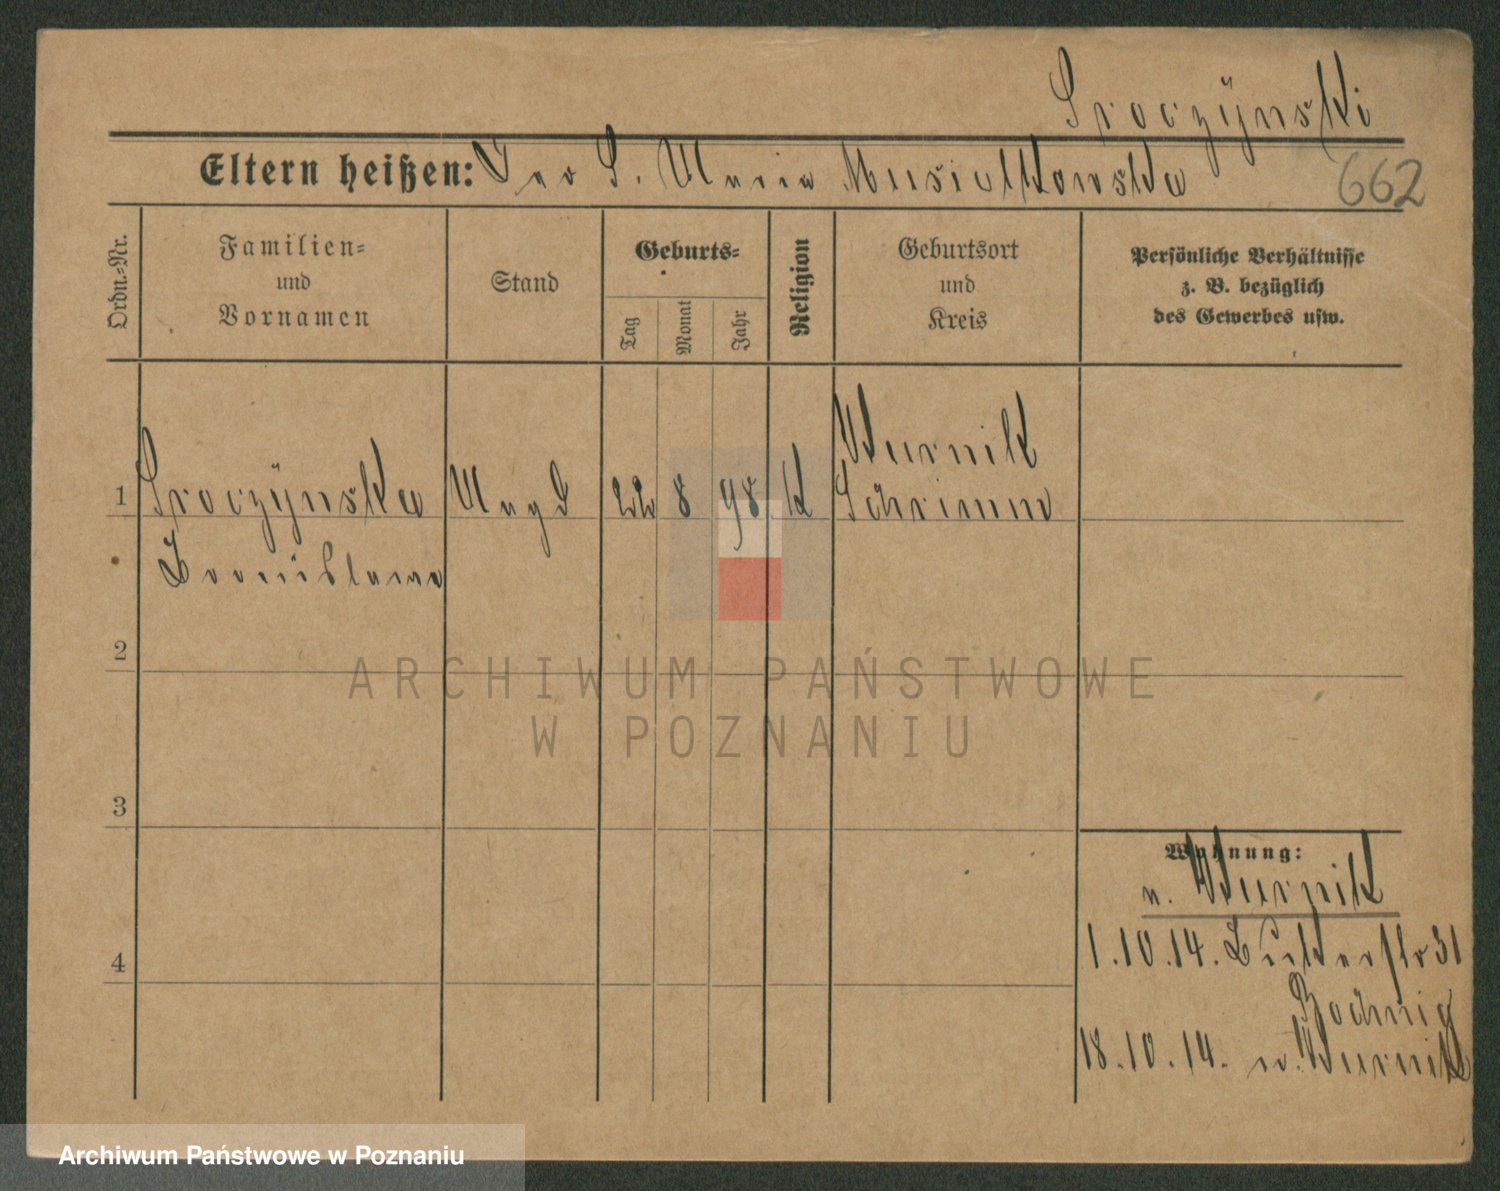 Sroczÿnski
Eltern heißen: S. Maria Musiolkowska
662
Ordn.=Nr.
Familien=
und
Vornamen
Stand
Geburts=
Tag
Monat
Jahr
Religion
Geburtsort
und
Kreis
Persönliche Verhältnisse
z. B. bezüglich
des Gewerbes usw.
Wurnik
1 Sroczÿnska Magd 22 8 98 K Schrimm
Bronislawa
2
ARCHIWUM PAŃSTWOWE
W POZNANIU
3
Wohnung:
n. Wurnik
4
1.10.14. Bukerstr 31
18.10.14. n. Wurnik
Archiwum Państwowe w Poznaniu